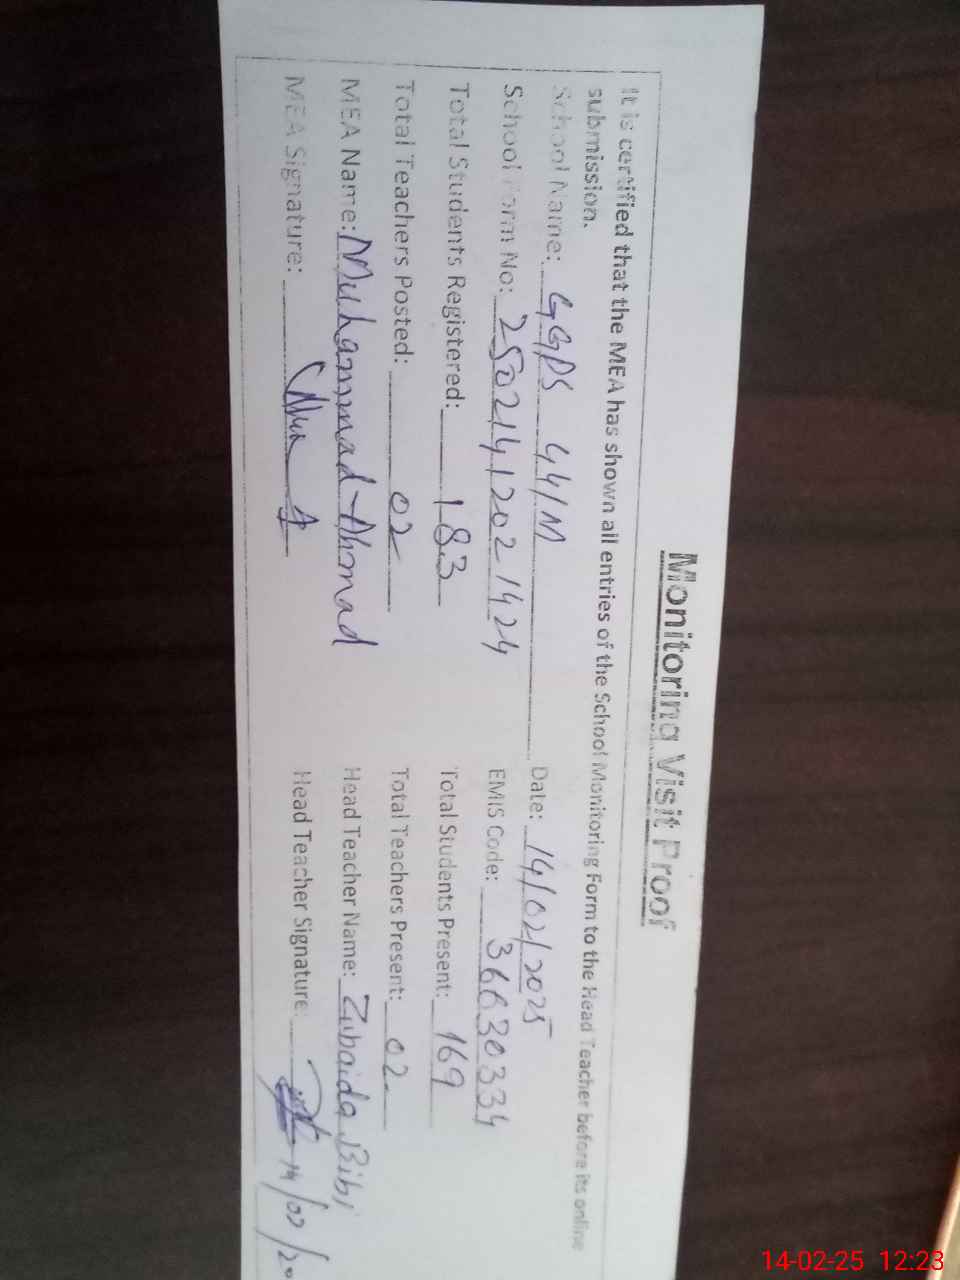 Monitoring Visit Proof
It is certified that the MEA has shown all entries of the School Monitoring Form to the Head Teacher before its online
submission.
School Name: GGPS 44/M Date: 14/02/2025
School Form No: 25021412021424 EMIS Code: 36630334
Total Students Registered: 183 Total Students Present: 169
Total Teachers Posted: 02 Total Teachers Present: 02
MEA Name: Muhammad Ahmad Head Teacher Name: Zubaida Bibi
MEA Signature: Head Teacher Signature: 14/02/20
14-02-25 12:23